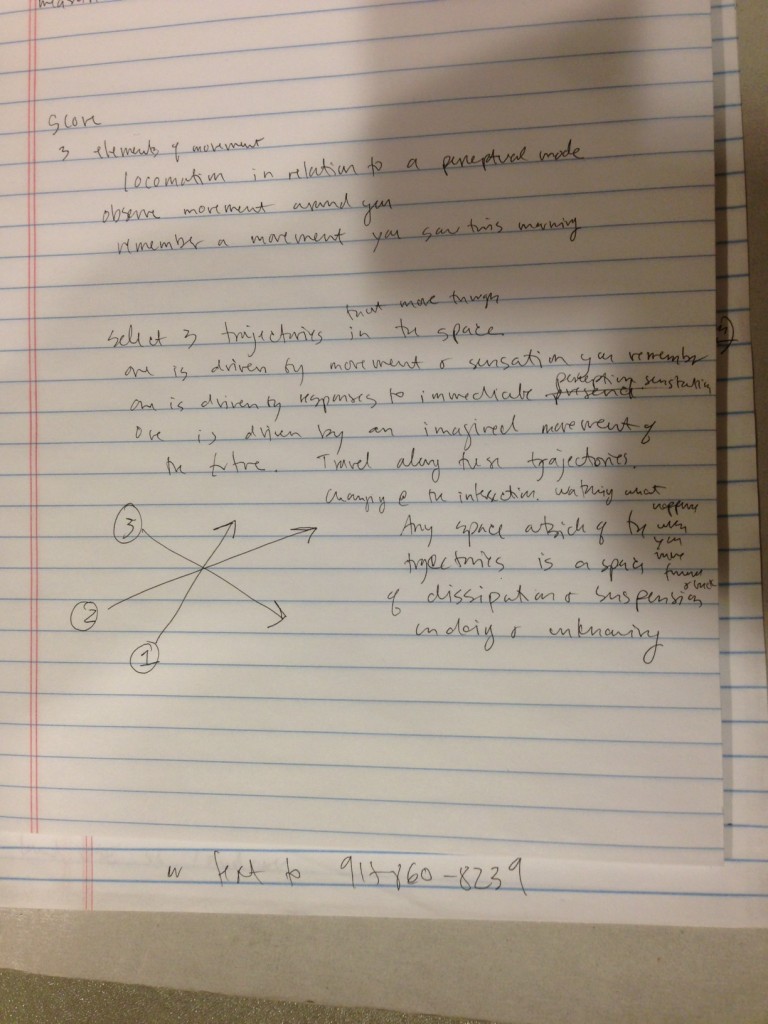 Score
3 elements of movement
locomotion in relation to a perceptual mode
observe movement around you
remember a movement you saw this morning
that move through
Select 3 trajectories in the space
one is driven by movement or sensation you remember
perception sensation
one is driven by responses to immediate present
One is driven by an imagined movement of
the future. Travel along these trajectories.
Changing @ the intersection. watching what
happens
Any space outside of the when
you
trajectories is a space move
forward
or back
of dissipation or suspension
undoing or unknowing
3
2
1
text to